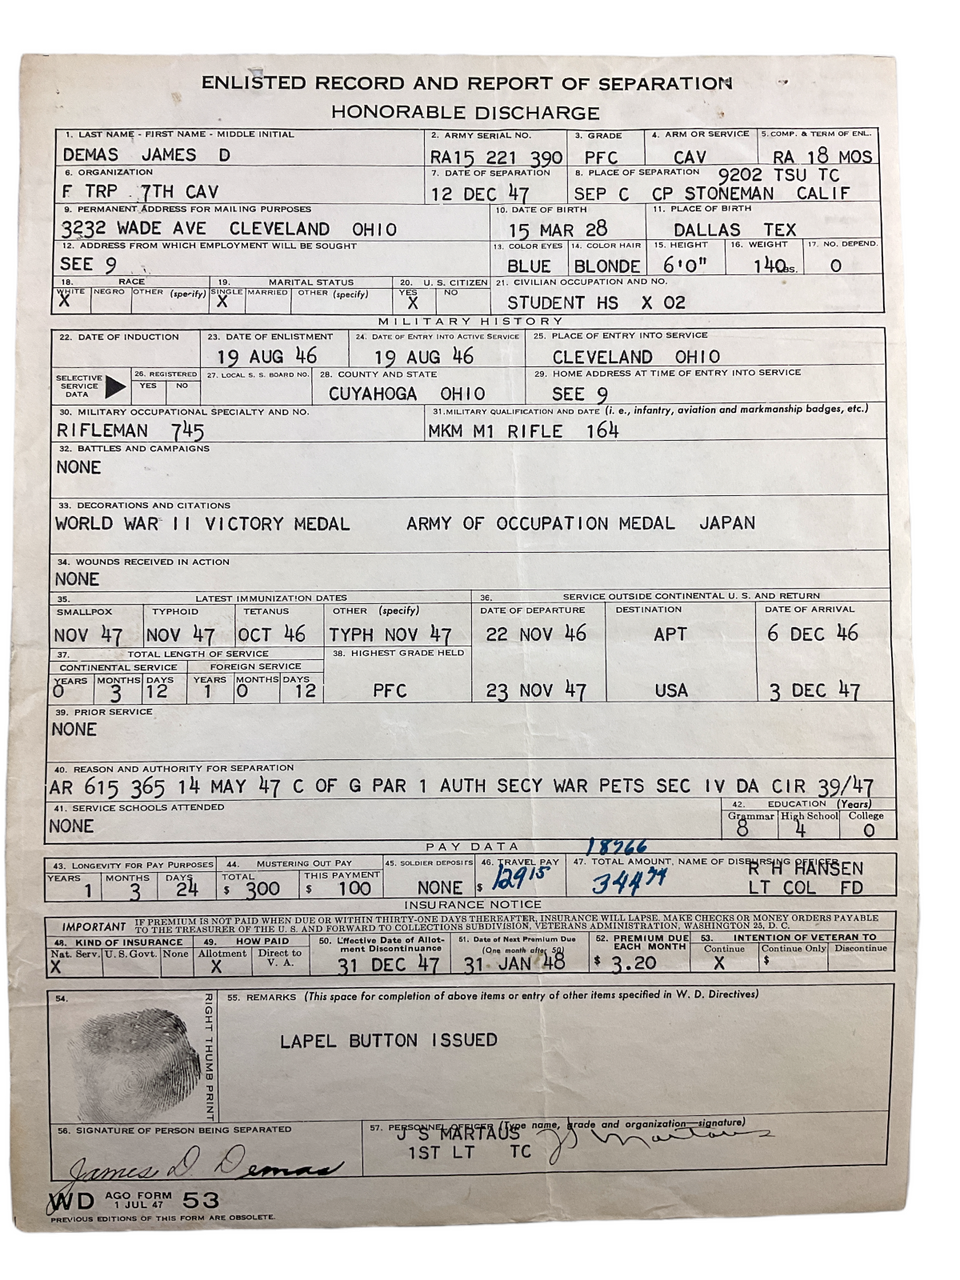 ENLISTED RECORD AND REPORT OF SEPARATION
HONORABLE DISCHARGE
1. LAST NAME - FIRST NAME - MIDDLE INITIAL 2. ARMY SERIAL NO. 3. GRADE 4. ARM OR SERVICE 5. COMP. & TERM OF ENL.
DEMAS JAMES D RA15 221 390 PFC CAV RA 18 MOS
6. ORGANIZATION 7. DATE OF SEPARATION 8. PLACE OF SEPARATION 9202 TSU TC
F TRP 7TH CAV 12 DEC 47 SEP C CP STONEMAN CALIF
9. PERMANENT ADDRESS FOR MAILING PURPOSES 10. DATE OF BIRTH 11. PLACE OF BIRTH
3232 WADE AVE CLEVELAND OHIO 15 MAR 28 DALLAS TEX
12. ADDRESS FROM WHICH EMPLOYMENT WILL BE SOUGHT 13. COLOR EYES 14. COLOR HAIR 15. HEIGHT 16. WEIGHT 17. NO. DEPEND.
SEE 9 BLUE BLONDE 6'0" 140 LBS. 0
18. RACE 19. MARITAL STATUS 20. U. S. CITIZEN 21. CIVILIAN OCCUPATION AND NO.
WHITE NEGRO OTHER (specify) SINGLE MARRIED OTHER (specify) YES NO
X X X STUDENT HS X 02
MILITARY HISTORY
22. DATE OF INDUCTION 23. DATE OF ENLISTMENT 24. DATE OF ENTRY INTO ACTIVE SERVICE 25. PLACE OF ENTRY INTO SERVICE
19 AUG 46 19 AUG 46 CLEVELAND OHIO
SELECTIVE SERVICE DATA 26. REGISTERED 27. LOCAL S. S. BOARD NO. 28. COUNTY AND STATE 29. HOME ADDRESS AT TIME OF ENTRY INTO SERVICE
YES NO CUYAHOGA OHIO SEE 9
30. MILITARY OCCUPATIONAL SPECIALTY AND NO. 31. MILITARY QUALIFICATION AND DATE (i. e., infantry, aviation and markmanship badges, etc.)
RIFLEMAN 745 MKM M1 RIFLE 164
32. BATTLES AND CAMPAIGNS
NONE
33. DECORATIONS AND CITATIONS
WORLD WAR II VICTORY MEDAL ARMY OF OCCUPATION MEDAL JAPAN
34. WOUNDS RECEIVED IN ACTION
NONE
35. LATEST IMMUNIZATION DATES 36. SERVICE OUTSIDE CONTINENTAL U. S. AND RETURN
SMALLPOX TYPHOID TETANUS OTHER (specify) DATE OF DEPARTURE DESTINATION DATE OF ARRIVAL
NOV 47 NOV 47 OCT 46 TYPH NOV 47 22 NOV 46 APT 6 DEC 46
37. TOTAL LENGTH OF SERVICE 38. HIGHEST GRADE HELD
CONTINENTAL SERVICE FOREIGN SERVICE
YEARS MONTHS DAYS YEARS MONTHS DAYS
0 3 12 1 0 12 PFC 23 NOV 47 USA 3 DEC 47
39. PRIOR SERVICE
NONE
40. REASON AND AUTHORITY FOR SEPARATION
AR 615 365 14 MAY 47 C OF G PAR 1 AUTH SECY WAR PETS SEC IV DA CIR 39/47
41. SERVICE SCHOOLS ATTENDED 42. EDUCATION (Years)
Grammar High School College
NONE 8 4 0
PAY DATA 18766
43. LONGEVITY FOR PAY PURPOSES 44. MUSTERING OUT PAY 45. SOLDIER DEPOSITS 46. TRAVEL PAY 47. TOTAL AMOUNT, NAME OF DISBURSING OFFICER
YEARS MONTHS DAYS TOTAL THIS PAYMENT R H HANSEN
1 3 24 $ 300 $ 100 NONE $ 12915 34474 LT COL FD
INSURANCE NOTICE
IMPORTANT IF PREMIUM IS NOT PAID WHEN DUE OR WITHIN THIRTY-ONE DAYS THEREAFTER, INSURANCE WILL LAPSE. MAKE CHECKS OR MONEY ORDERS PAYABLE
TO THE TREASURER OF THE U. S. AND FORWARD TO COLLECTIONS SUBDIVISION, VETERANS ADMINISTRATION, WASHINGTON 25, D. C.
48. KIND OF INSURANCE 49. HOW PAID 50. Effective Date of Allotment Discontinuance 51. Date of Next Premium Due (One month after 50) 52. PREMIUM DUE EACH MONTH 53. INTENTION OF VETERAN TO
Nat. Serv. U. S. Govt. None Allotment Direct to V. A. Continue Continue Only Discontinue
X X 31 DEC 47 31 JAN 48 $ 3.20 X $
54. RIGHT THUMB PRINT 55. REMARKS (This space for completion of above items or entry of other items specified in W. D. Directives)
LAPEL BUTTON ISSUED
56. SIGNATURE OF PERSON BEING SEPARATED 57. PERSONNEL OFFICER (Type name, grade and organization - signature)
J S MARTAUS J S Martaus
1ST LT TC
James D. Demas
WD AGO FORM 53
1 JUL 47
PREVIOUS EDITIONS OF THIS FORM ARE OBSOLETE.